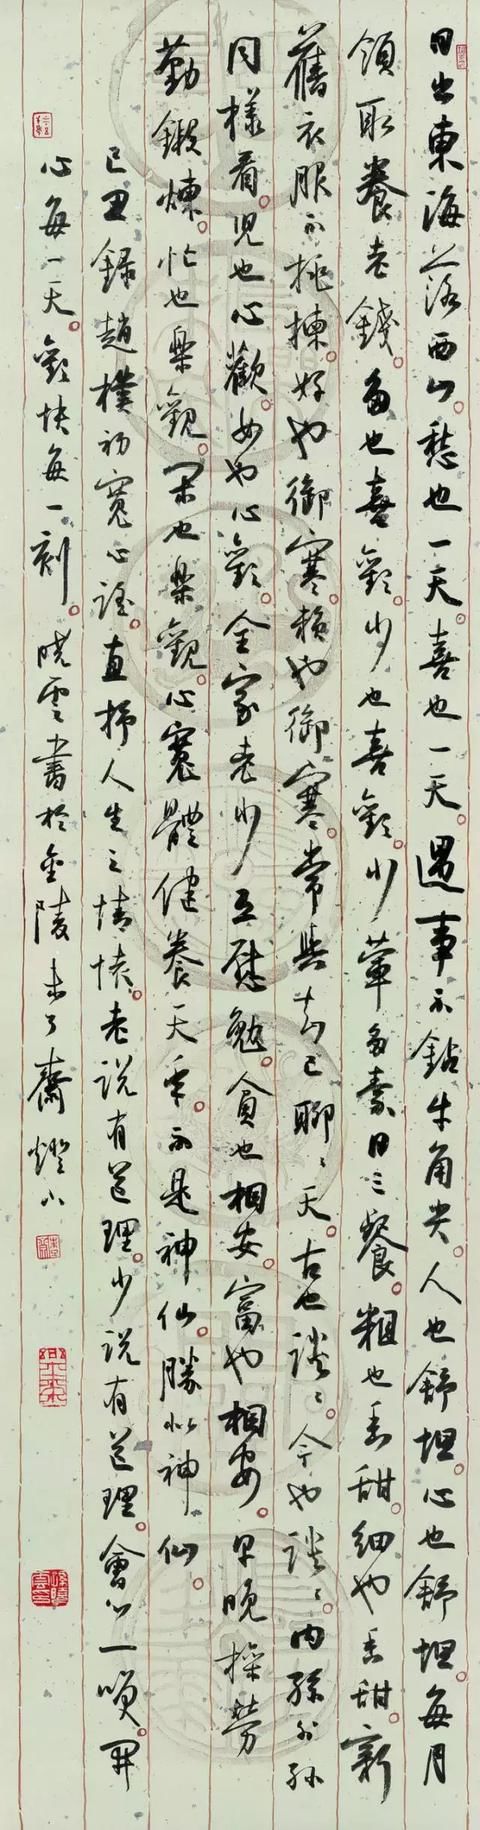 日出東海落西山。愁也一天。喜也一天。遇事不鑽牛角尖。人也舒坦。心也舒坦。每月
領取養老錢。多也喜歡。少也喜歡。少葷多素日三餐。粗也香甜。細也香甜。新
舊衣服不挑揀。好也御寒。賴也御寒。常與知己聊聊天。古也談談。今也談談。内孫外孫
同樣看。兒也心歡。女也心歡。全家老少互慰勉。貧也相安。富也相安。早晚操勞
勤鍛煉。忙也樂觀。閑也樂觀。心寬體健養天年。不是神仙。勝似神仙。
己丑錄趙樸初寬心謠。直抒人生之情懷。老說有道理。少說有道理。會心一笑。開
心每一天。歡快每一刻。曉雲書於金陵未了齋燈下